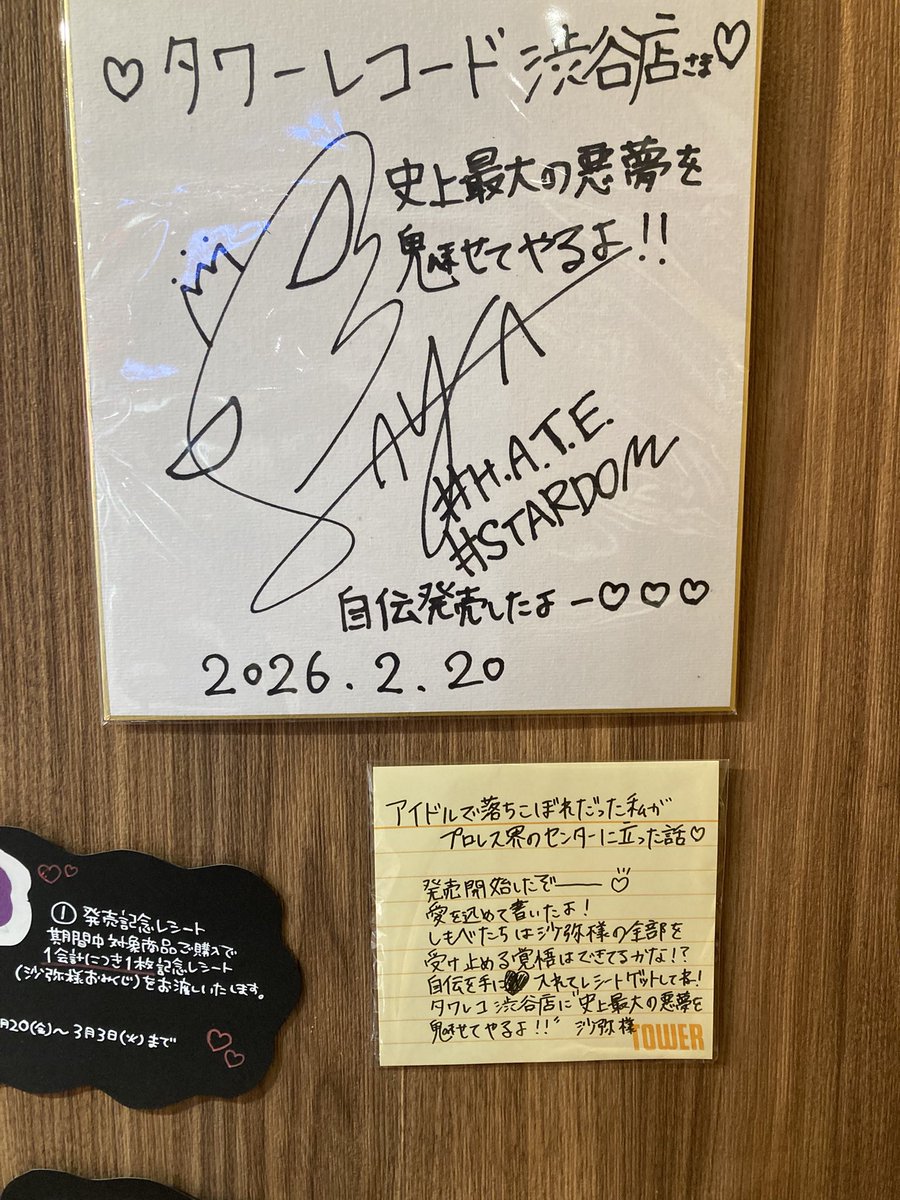 ♡タワーレコード渋谷店さま♡
史上最大の悪夢を
魅せてやるよ!!
SAYA
#H.A.T.E.
#STARDOM
自伝発売したよー♡♡♡
2026.2.20
アイドルで落ちこぼれだった私が
プロレス界のセンターに立った話♡
発売開始したぞー♡
愛を込めて書いたよ!
しもべたちは沙弥様の全部を
受け止める覚悟はできてるかな!?
自伝を手に入れてレシートゲットしてね!
タワレコ渋谷店に"史上最大の悪夢を
魅せてやるよ!!" 沙弥様
TOWER
① 発売記念レシート
期間中対象商品ご購入で
1会計につき1枚記念レシート
(沙弥様おみくじ)をお渡しいたします。
月20(金)〜3月3日(火)まで